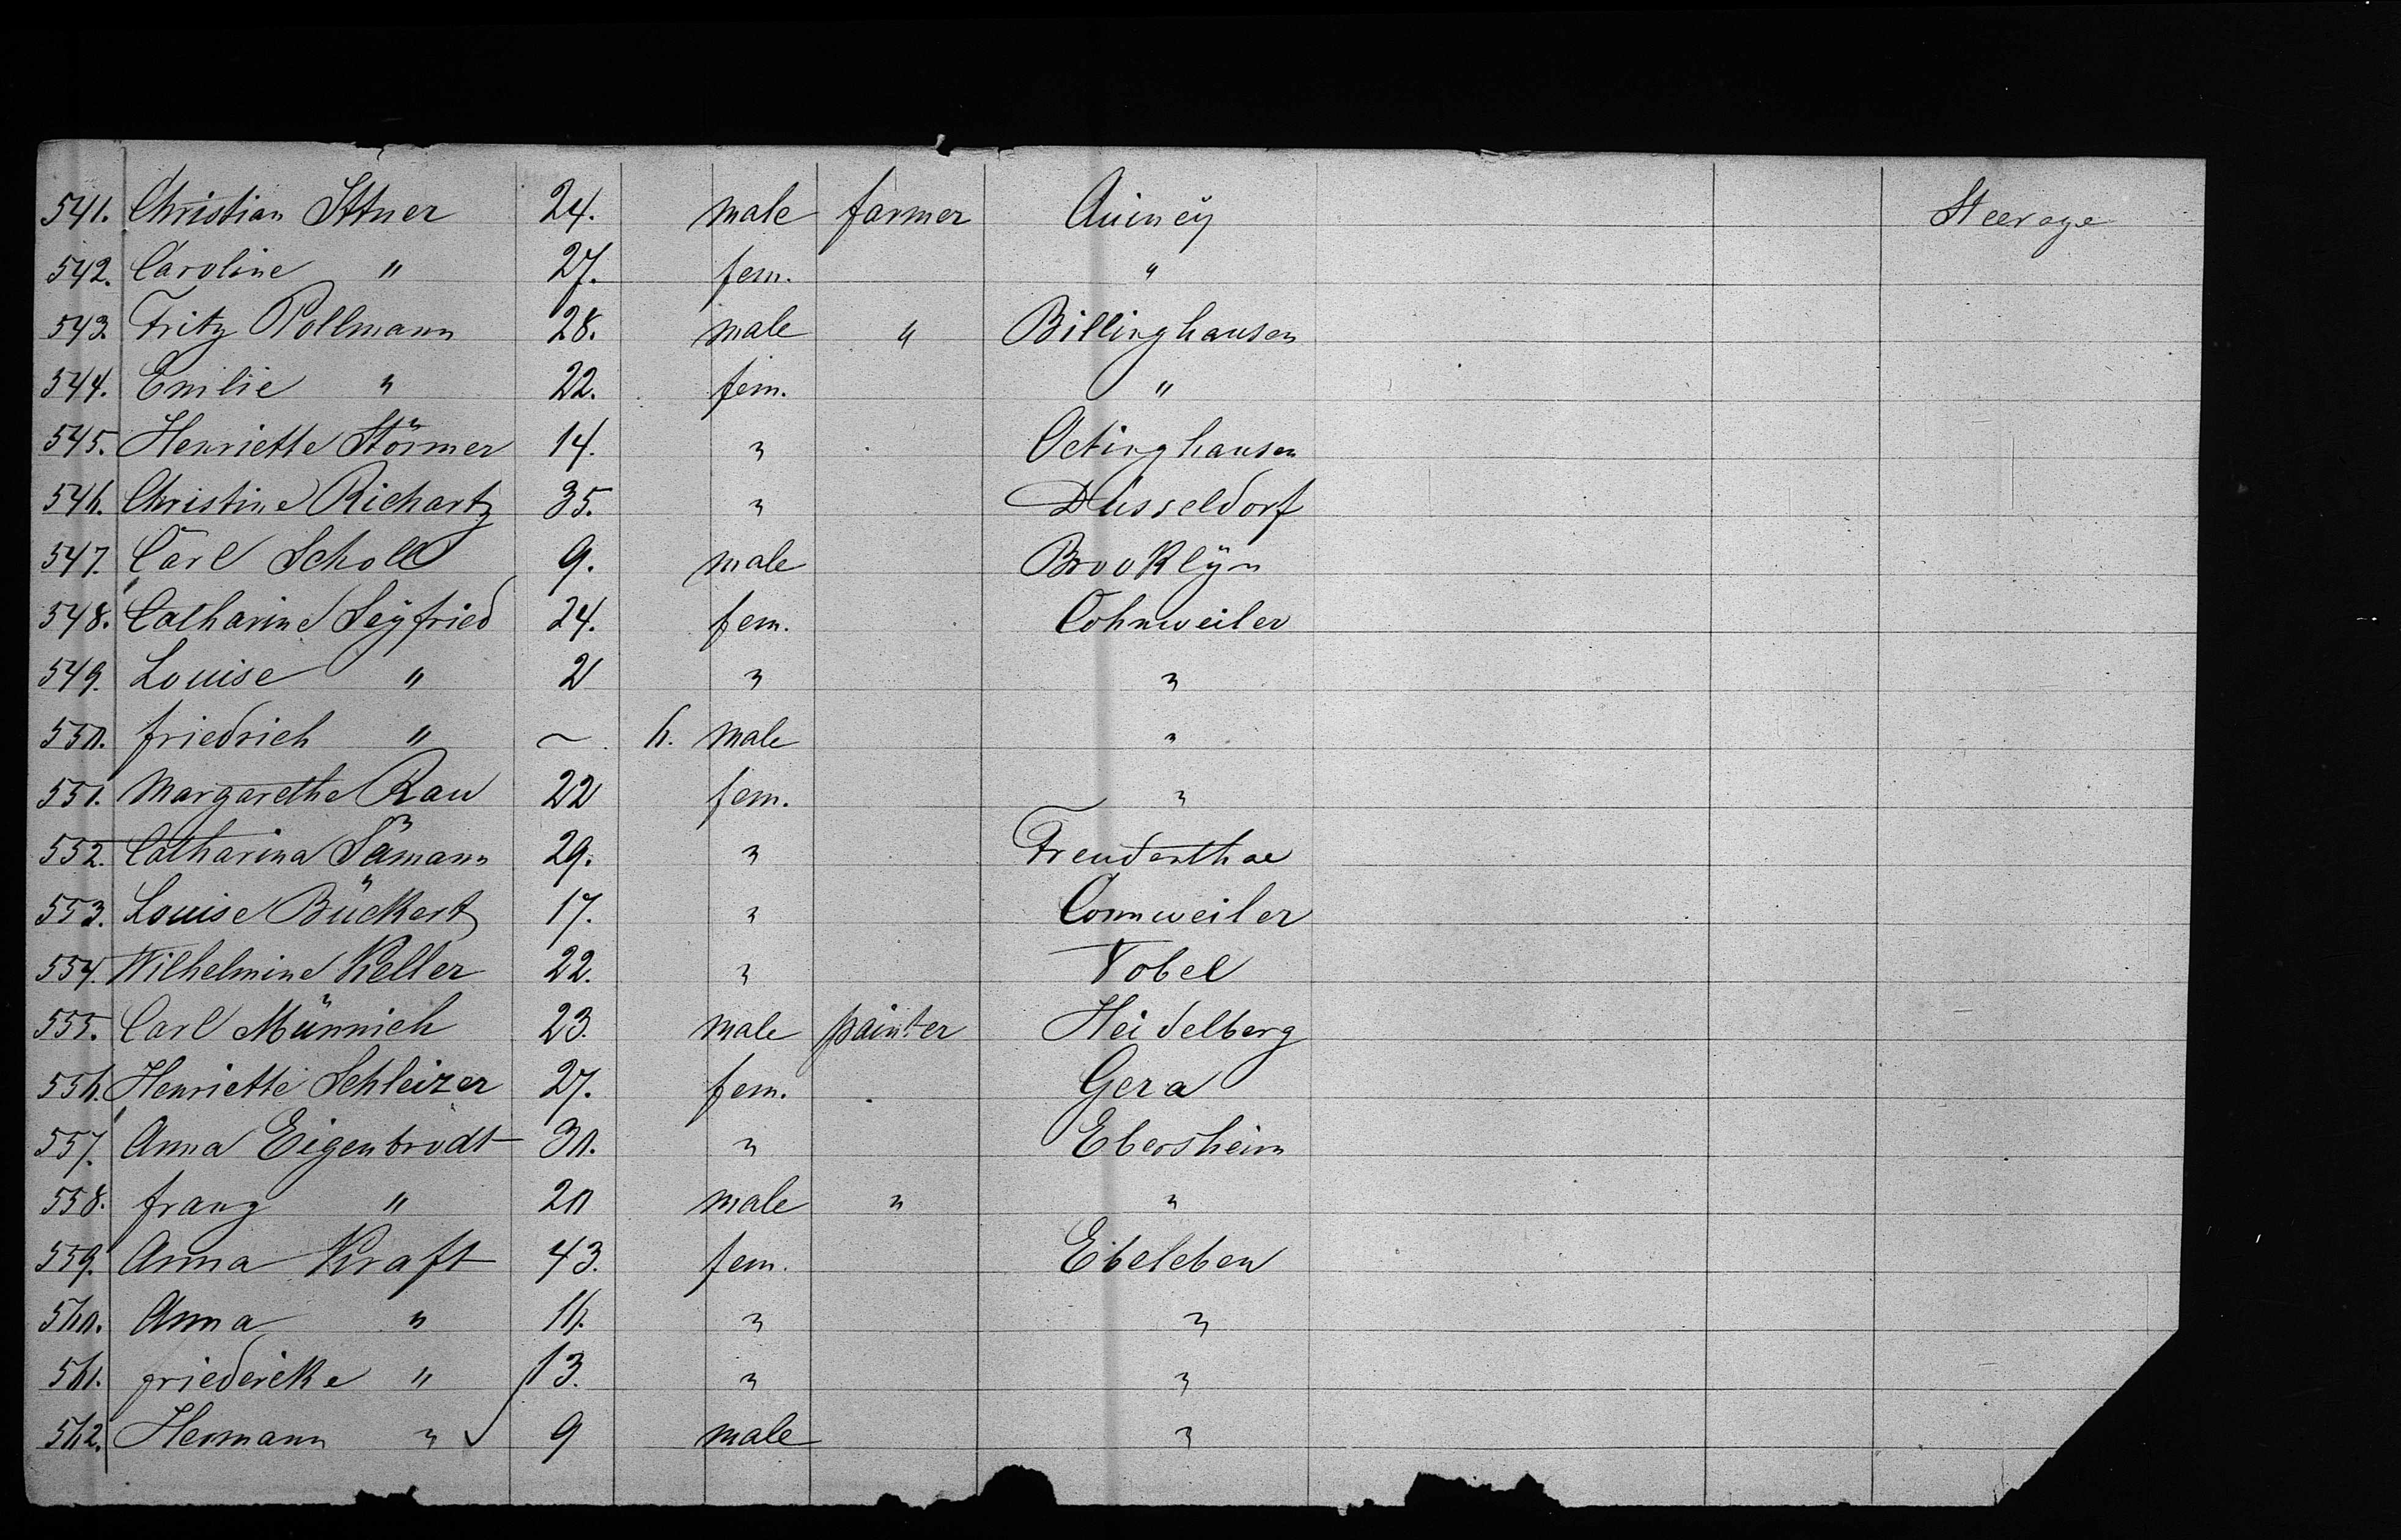 541. Christian Ittner 24. male farmer Quincy Steerage
542. Caroline " 27. fem. "
543. Fritz Pollmann 28. male " Billinghausen
544. Emilie " 22. fem. "
545. Henriette Störmer 14. " Oetinghausen
546. Christine Richartz 35. " Düsseldorf
547. Carl Scholl 9. male Brooklÿn
548. Catharine Seÿfried 24. fem. Cohnweiler
549. Louise " 2 " "
550. Friedrich " ~ 6. male "
551. Margarethe Rau 22 fem. "
552. Catharina Sämann 29. " Freudenthal
553. Louise Bückert 17. " Connweiler
554. Wilhelmine Keller 22. " Tobel
555. Carl Münnich 23. male painter Heidelberg
556. Henriette Schleizer 27. fem. Gera
557. Anna Eigenbrodt 30. " Ebersheim
558. Franz " 20 male " "
559. Anna Kraft 43. fem. Ebeleben
560. Anna " 16. " "
561. Friedericke " 13. " "
562. Hermann " 9 male "